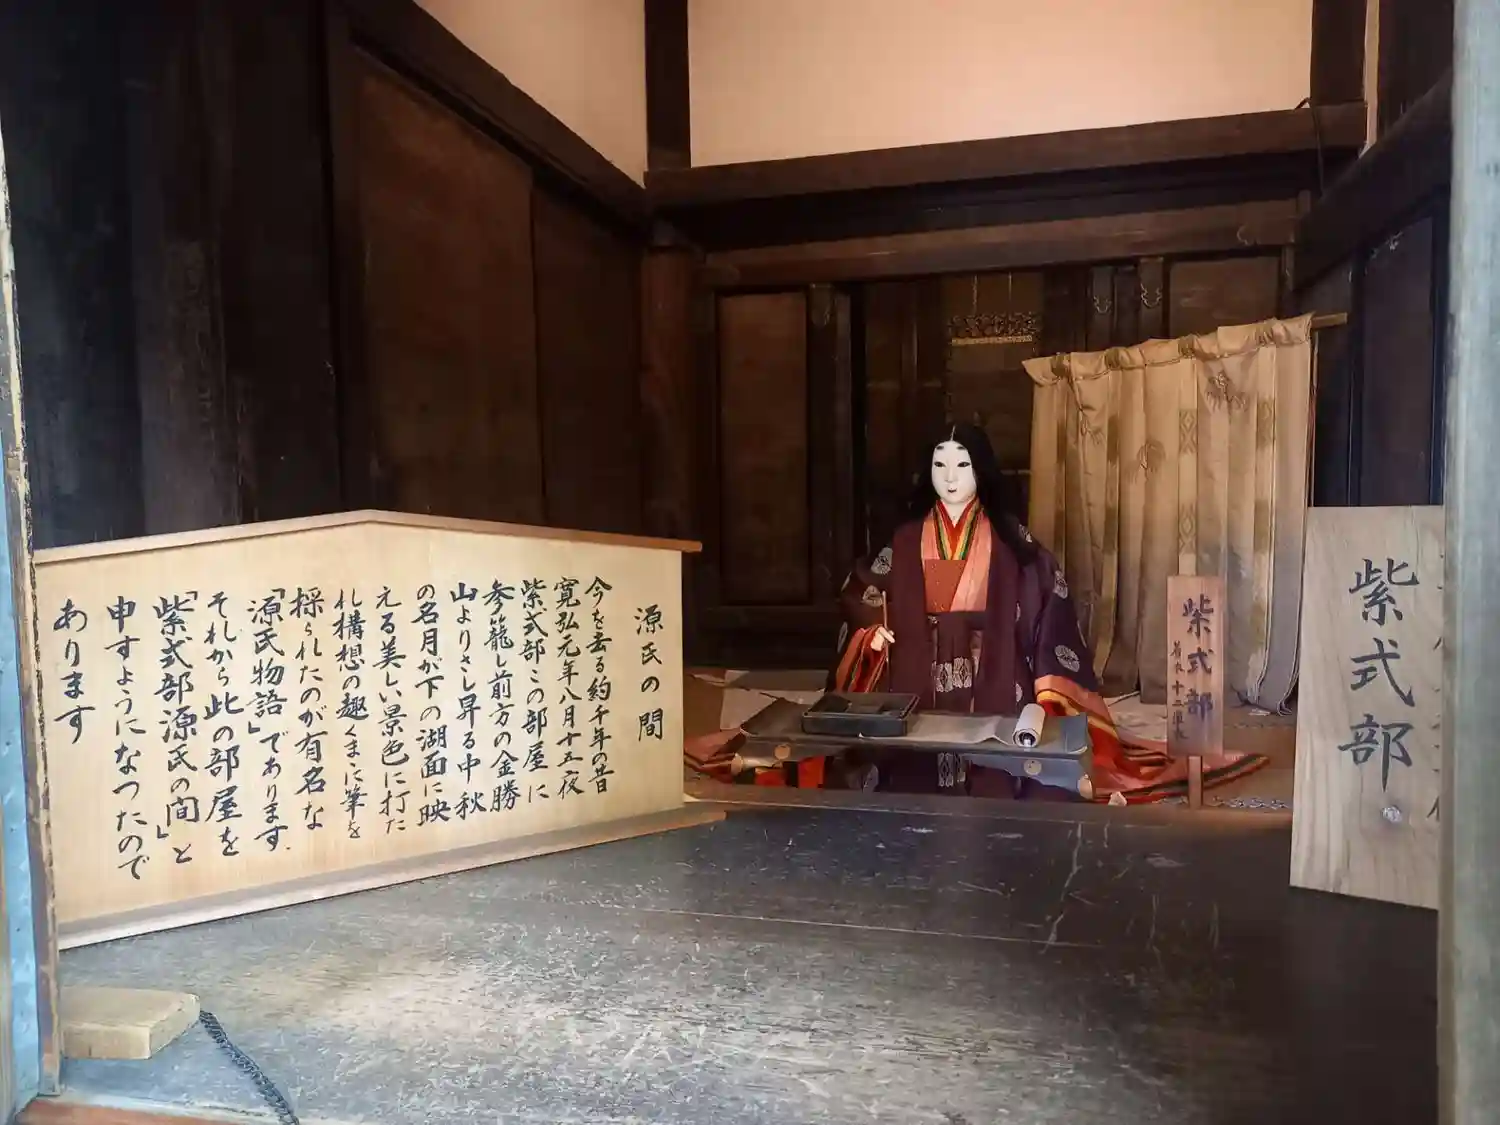 源氏の間
今を去る約千年の昔
寛弘元年八月十五夜
紫式部この部屋に
参籠し前方の金勝
山よりさし昇る中秋
の名月が下の湖面に映
える美しい景色に打た
れ構想の趣くまゝに筆を
採られたのが有名な
「源氏物語」であります.
それから此の部屋を
「紫式部源氏の間」と
申すようになつたので
あります
紫式部
十二単衣
紫式部